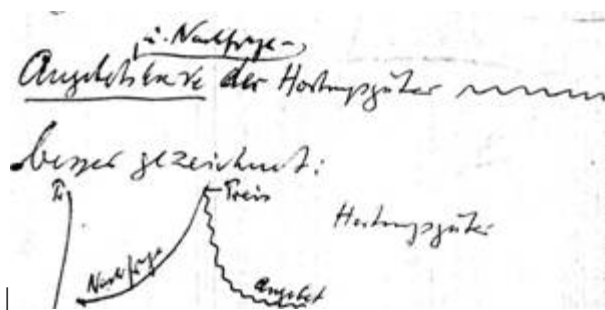 u. Nachfrage-
Angebotskurve der Hortungsgüter
besser gezeichnet:
Pr
Preis
Hortungsgüter
Nachfrage
Angebot